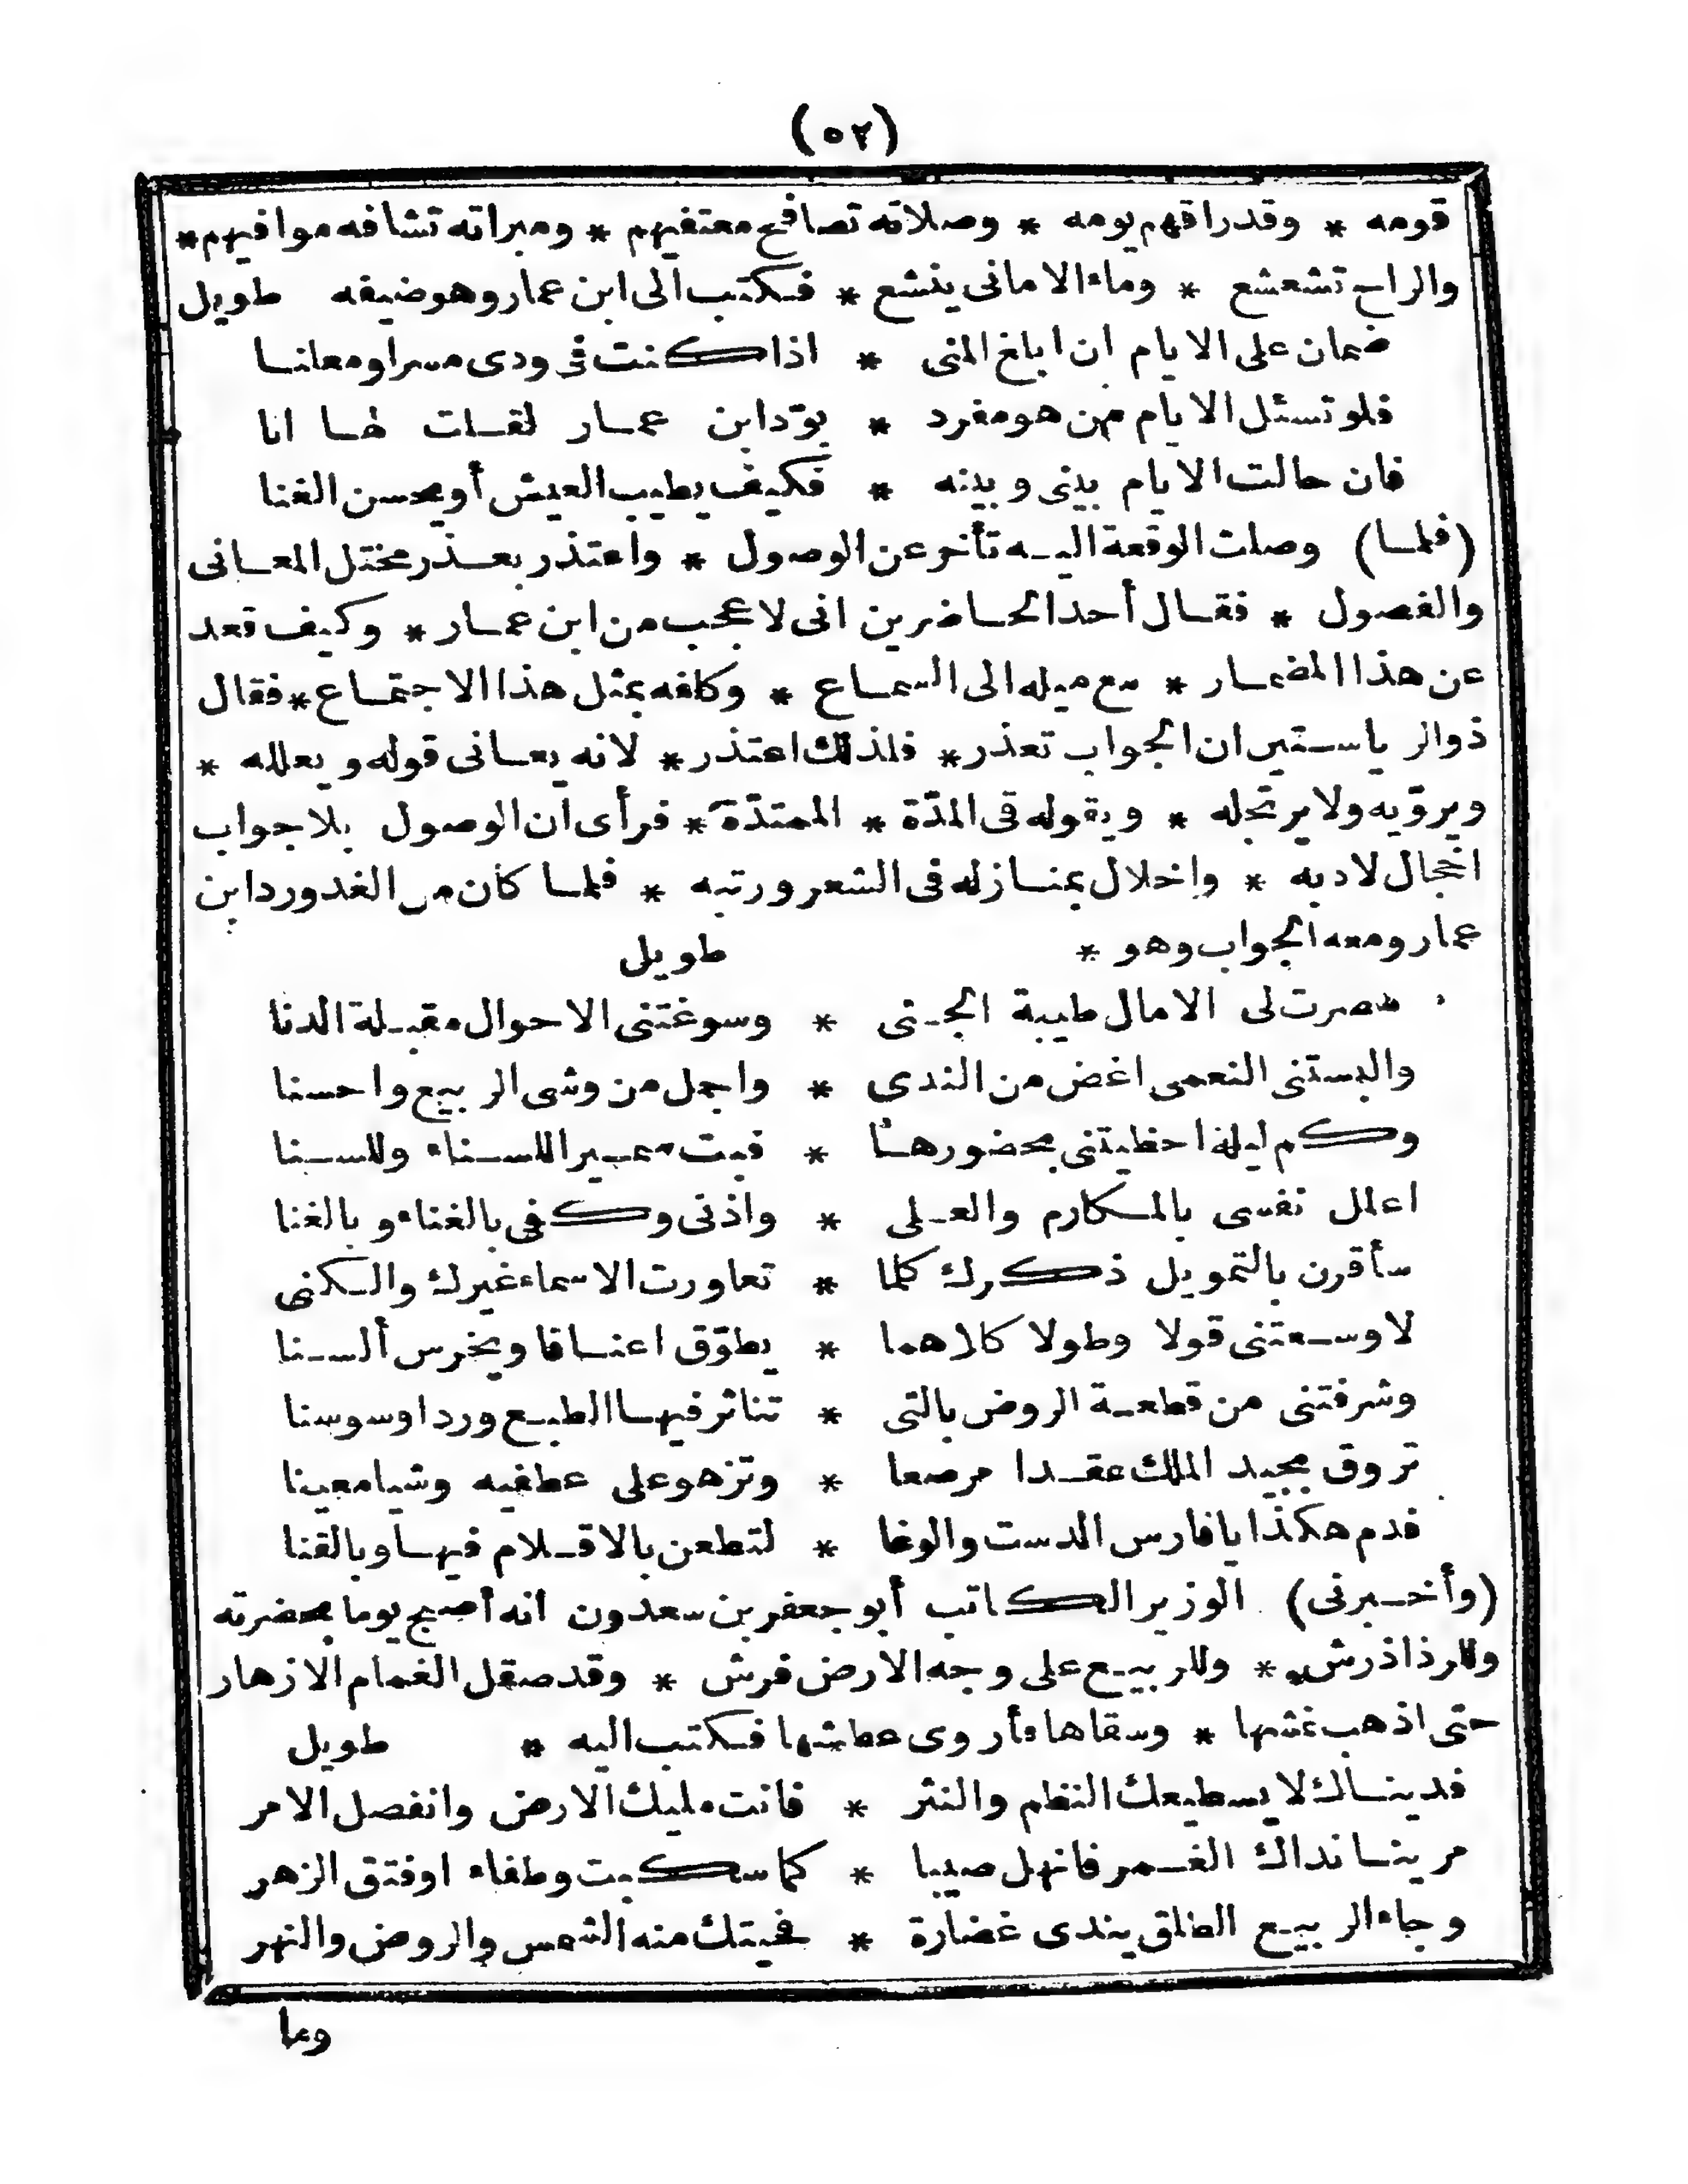 (٥٢)
قومه * وقد راقهم يومه * وصلاته تصافح معتفيهم * ومبراته تشافه موافيهم *
والراح تشعشع * وماء الامانى ينشع * فكتب الى ابن عمار وهو ضيفه طويل
ضمان على الايام ان ابلغ المنى * اذا كنت فى ودى مسرا ومعلنا
فلو تسئل الايام من هو مفرد * بودّ ابن عمار لقلت لها انا
فان حالت الايام بينى وبينه * فكيف يطيب العيش أو يحسن الغنا
(فلما) وصلت الوقعة اليه تأخر عن الوصول * واعتذر بعذر مختل المعانى
والفصول * فقال أحد الحاضرين انى لا عجب من ابن عمار * وكيف قعد
عن هذا المضمار * مع ميله الى السماع * وكلفه بمثل هذا الاجتماع * فقال
ذوالر ياستين ان الجواب تعذر * فلذلك اعتذر * لانه يعانى قوله ويعلله *
ويروّيه ولا يرتجله * ويقوله فى المدّة * الممتدّة * فرأى ان الوصول بلا جواب
اخجال لادبه * واخلال بمنازله فى الشعر ورتبه * فلما كان من الغد ورد ابن
عمار ومعه الجواب وهو * طويل
هصرت لى الامال طيبة الجنى * وسوغتنى الاحوال مقبلة الدنا
والبستنى النعمى اغض من الندى * واجمل من وشى الربيع واحسنا
وكم ليلة احظيتنى بحضورها * فبت سميرا للسناء وللسنا
اعلل نفسى بالمكارم والعلى * واذنى وكفى بالغناء وبالغنا
سأقرن بالتمويل ذكرك كلما * تعاورت الاسماء غيرك والكنى
لاوسعتنى قولا وطولا كلاهما * يطوّق اعناقا ويخرس ألسنا
وشرفتنى من قطعة الروض بالتى * تناثر فيها الطبع وردا وسوسنا
تروق بجيد الملك عقدا مرصعا * وتزهو على عطفيه وشيا معينا
فدم هكذا يا فارس الدست والوغا * لتطعن بالاقلام فيها وبالقنا
(وأخبرنى) الوزير الكاتب أبو جعفر بن سعدون انه أصبح يوما بحضرته
وللرذاذ رش * وللربيع على وجه الارض فرش * وقد صقل الغمام الازهار
حتى اذهب نمشها * وسقاها فأروى عطشها فكتب اليه * طويل
فديناك لا يسطيعك النظم والنثر * فانت مليك الارض وانفصل الامر
مرينا نداك الغمر فانهل صيبا * كما سكبت وطفاء اوفتق الزهر
وجاء الربيع الطلق يندى غضارة * فحيتك منه الشمس والروض والنهر
وما